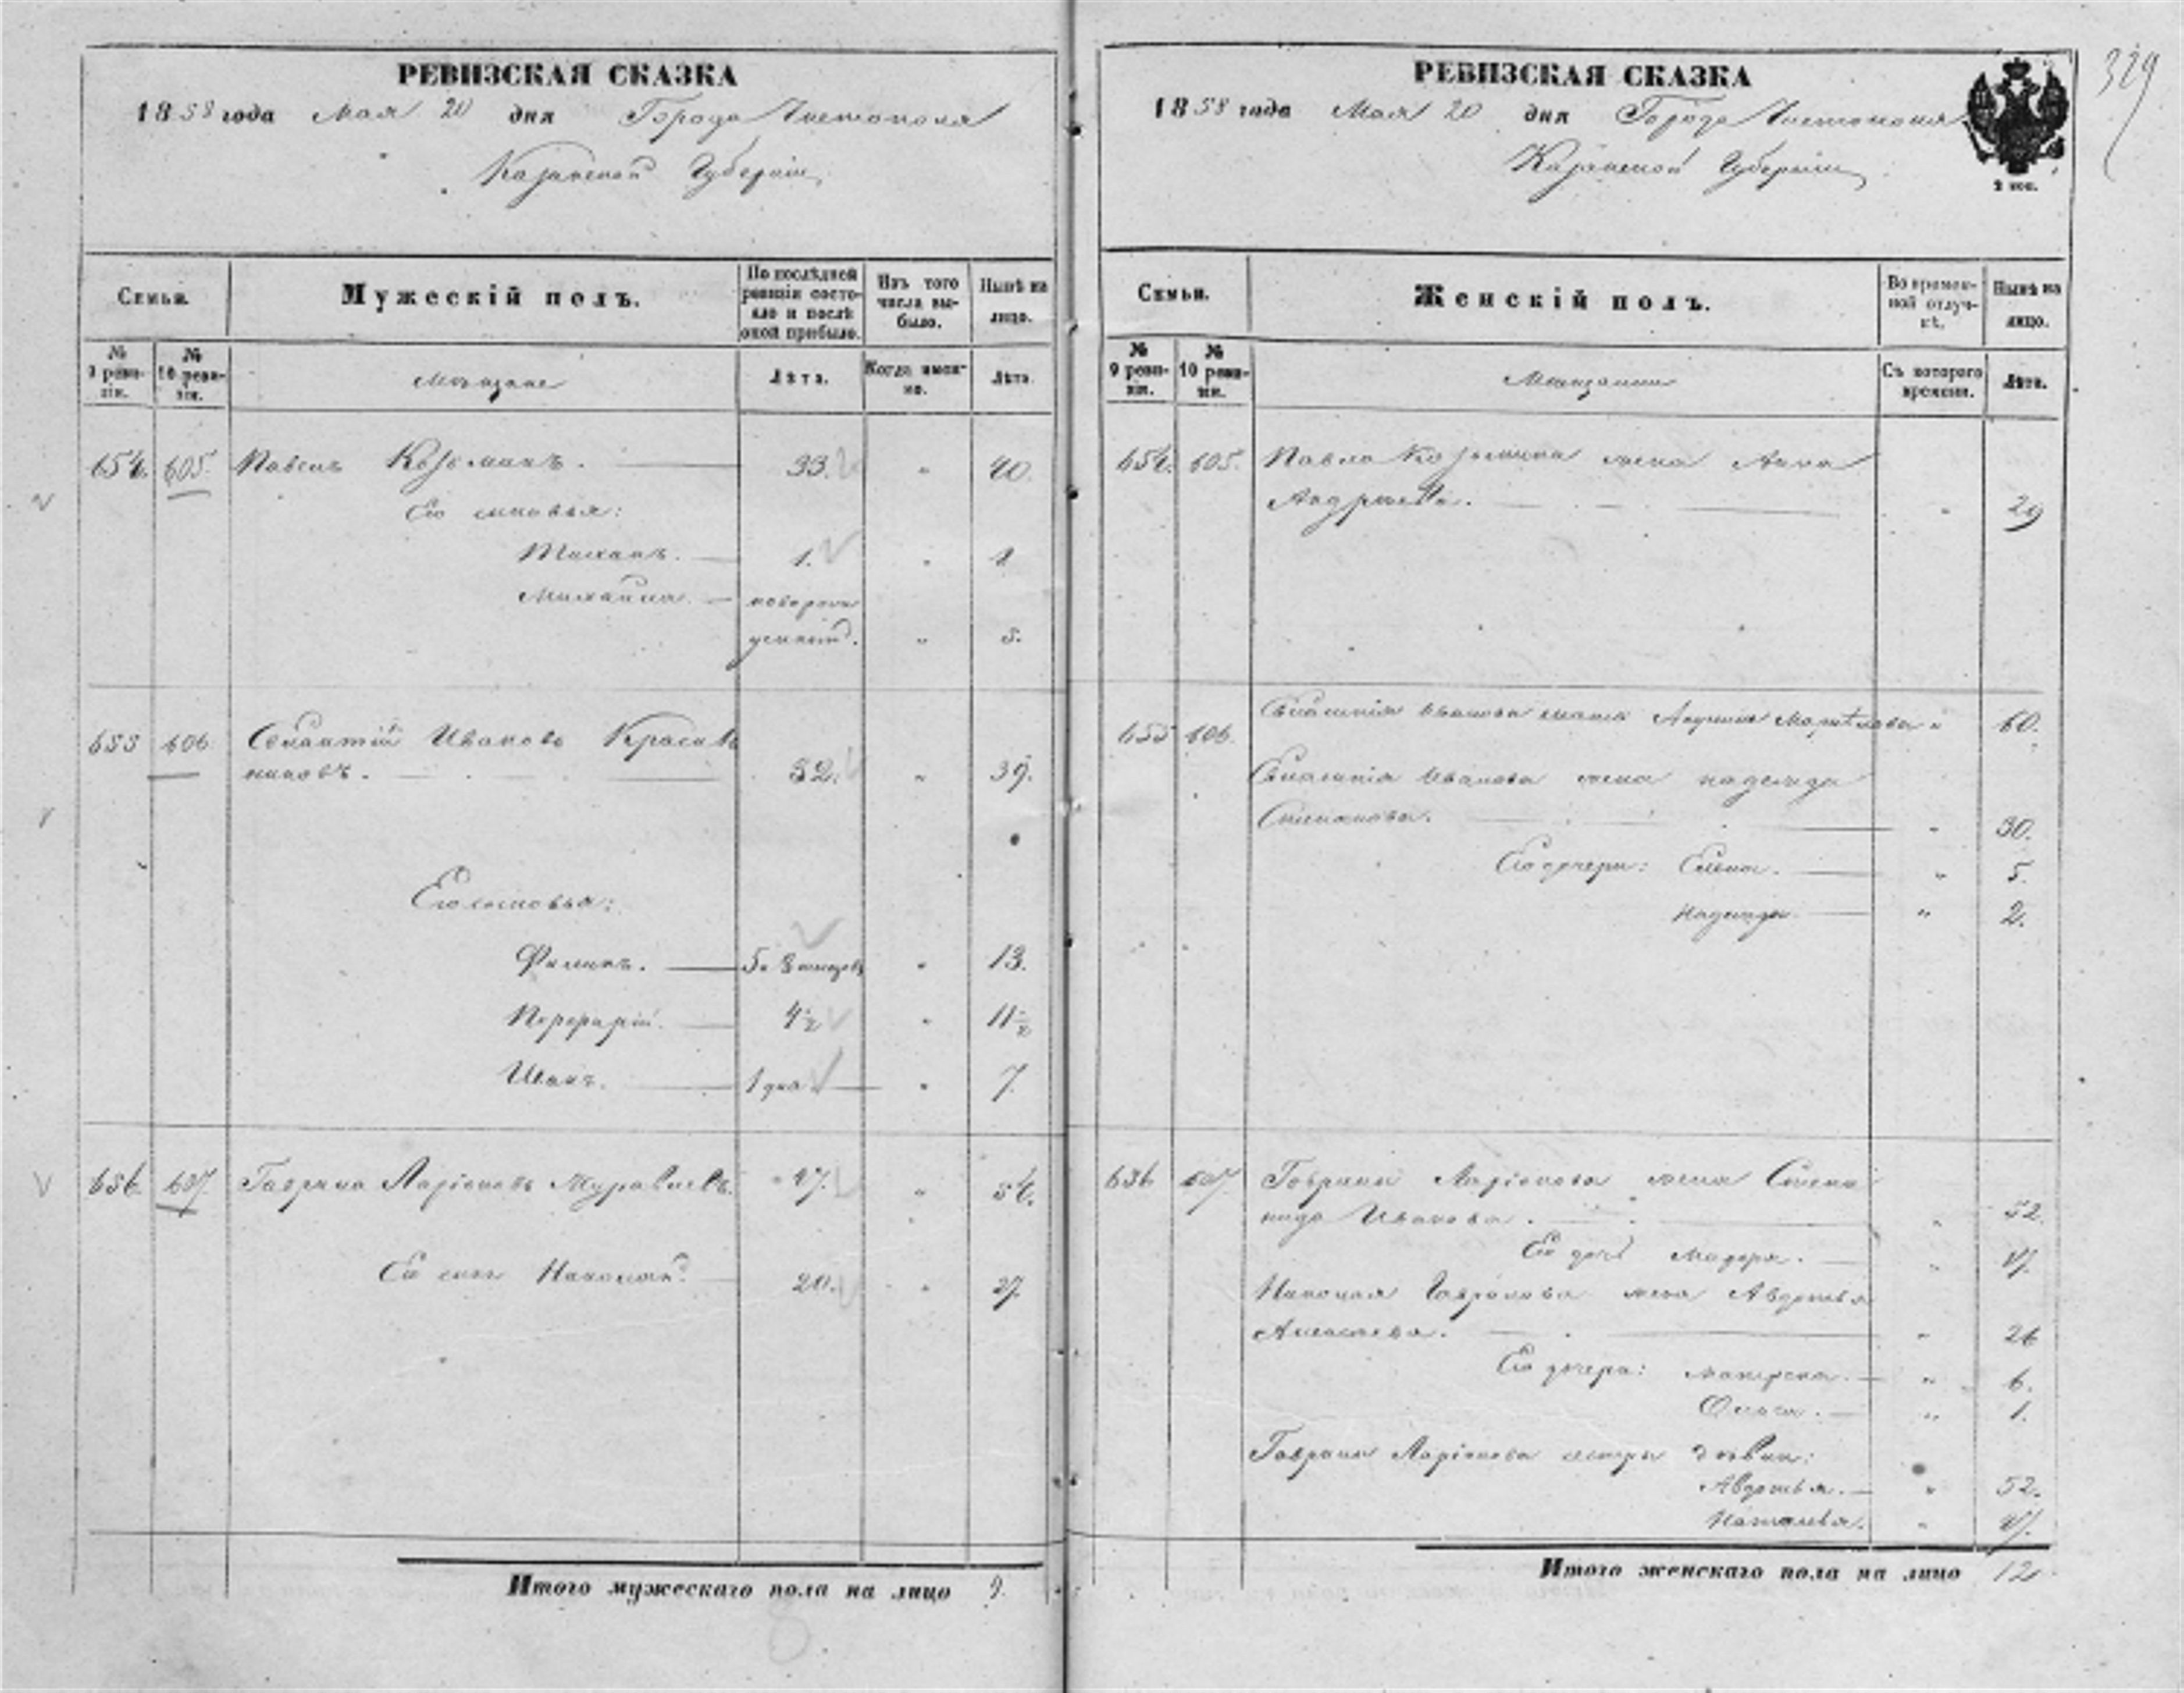 РЕВИЗСКАЯ СКАЗКА
1858 года Мая 20 дня Города Чистополя
Казанской Губерніи
Семьи.
Мужескій полъ.
По послѣдней ревизіи состояло и послѣ оной прибыло.
Изъ того числа выбыло.
Нынѣ на лицо.
№ 9 ревизіи.
№ 10 ревизіи.
Мещане
Лѣта.
Когда именно.
Лѣта
654. 605. Павелъ Козьминъ. 33. " 40.
Его сыновья:
1. "
Михаила новорож
" 5.
655 606 Иванова Красиль
никовъ. 32. " 39.
Его сыновья:
Филипъ. 5 и 8 месяцовъ " 13.
Порфирій. 4 1/2 " 11 1/2
Иванъ. 1 дня " 7.
656. 607. Гаврила Ларіоновъ Журавлевъ. 47. " 54.
Его сынъ Николай. 20. " 27.
Итого мужескаго пола на лицо 9.
РЕВИЗСКАЯ СКАЗКА
329
1858 года Мая 20 дня Города Чистополя
Казанской Губерніи
2 коп.
Семьи.
Женскій полъ.
Во временной отлучкѣ.
Нынѣ на лицо.
№ 9 ревизіи.
№ 10 ревизіи.
Мещанки
Съ котораго времени.
Лѣта.
654. 605. Павла Козьмина жена Анна
Андреева. " 29
655 606. Иванова мать " 60.
Иванова жена Надежда
Степанова. " 30.
Его дочери: Елена. " 5.
Надежда " 2.
656 607 Гаврилы Ларіонова жена Степа
нида Иванова. " 52.
Его дочь "
Николая Гаврилова жена Авдотья
Алексеева. " 26
Его дочери: " 6.
Ольга. " 1.
Гаврилы Ларіонова сестры дѣвки:
Авдотья. " 52.
Наталья. "
Итого женскаго пола на лицо 12